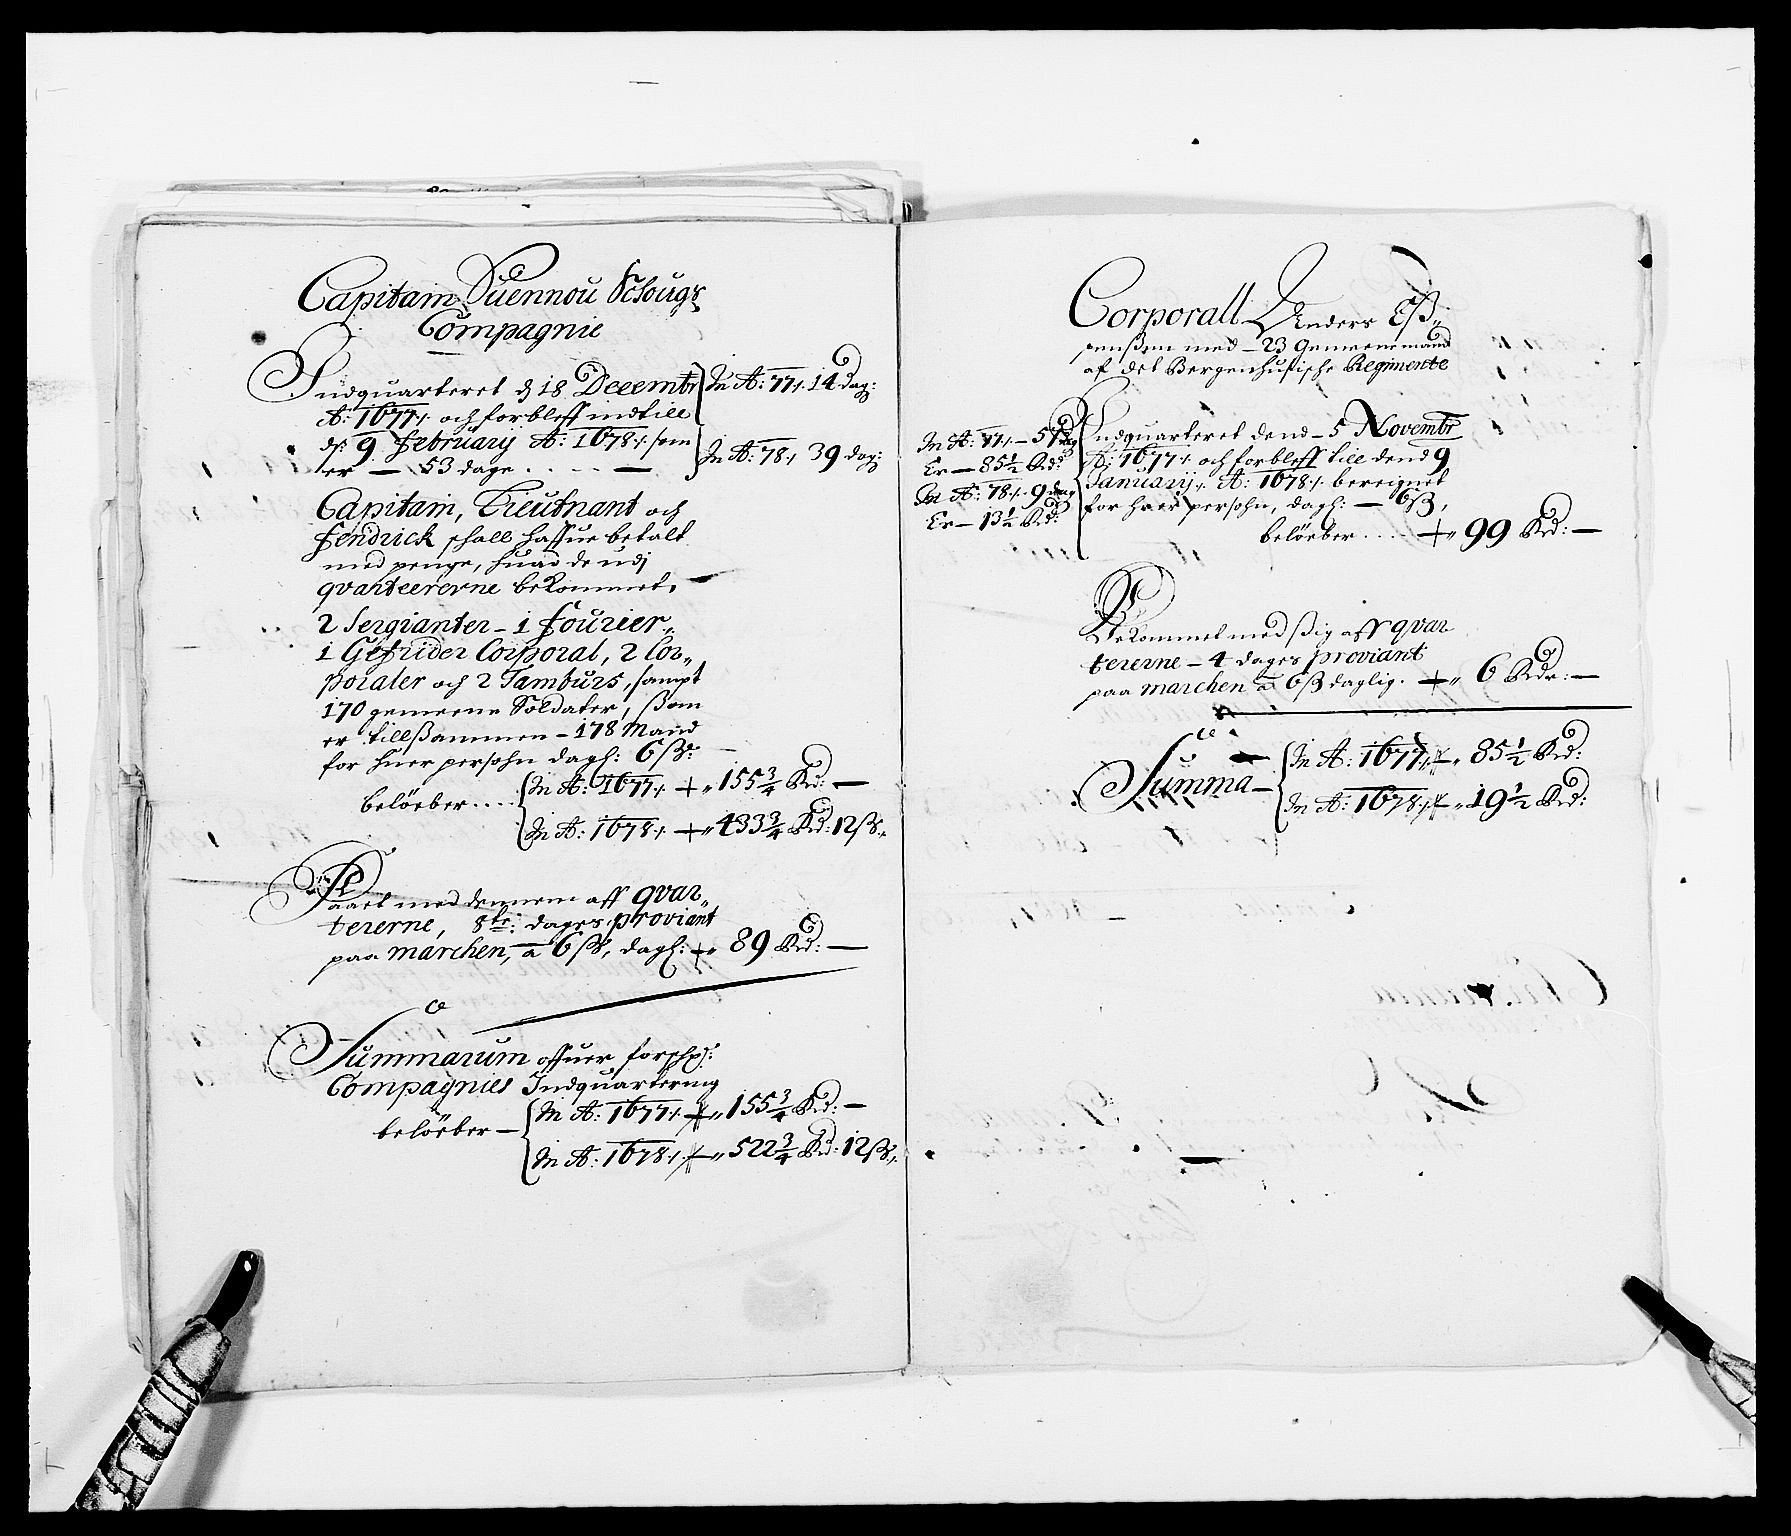 Capitain Suennou Schougs
Compagnie
Indquarteret d 18 Decembr
A: 1677 och forbleff indtill
d: 9 February A: 1678 som
er — 53 dage . . — —
In A: 77 14 dag:
In A: 78 39 dag:
Capitain, Lieutnant och
fendrick schall haffue betalt
med penge, huad de udj
qvarteererne bekommet.
2 Sergianter - 1 fourier,
1 Gefrider Corporal, 2 Cor„
poraler och 2 Tamburs, sampt
170 gemeene Soldater, ßom
er tillßammen - 178 Mand
for huer persohn dagl: 6 ß:
belöeber . . . . In A: 1677 155 3/4 Rd: —
In A: 1678 433 3/4 Rd: 12 ß
Paaet med dennem aff qvar„
tererne, 8te: dages proviant
paa marchen, a 6 ß, dagl: 89 Rd: —
Summarum offuer
Compagnies Indquartering
belöeber — In A: 1677 155 3/4 Rd: —
In A: 1678 522 3/4 Rd: 12 ß
Corporall Anders Eß„
penßen med - 23 Gemeene mand
af det Bergenhusische Regimente
In A: 77 - 57 dag
Er - 85 1/2 Rd:
In A: 78 - 9 dag
Er - 13 1/2 Rd:
Indquarteret dend - 5 Novembr
A: 1677 och forbleff till dend 9
Januarij A: 1678 bereignet
for huer persohn, dagl: — 6 ß,
belöeber . . . . 99 Rd: —
Bekommet med ßig aff qvar
tererne - 4 dages proviant
paa marchen a 6 ß daglig. 6 Rdr: —
Summa — In A: 1677 85 1/2 Rd:
In A: 1678 19 1/2 Rd: